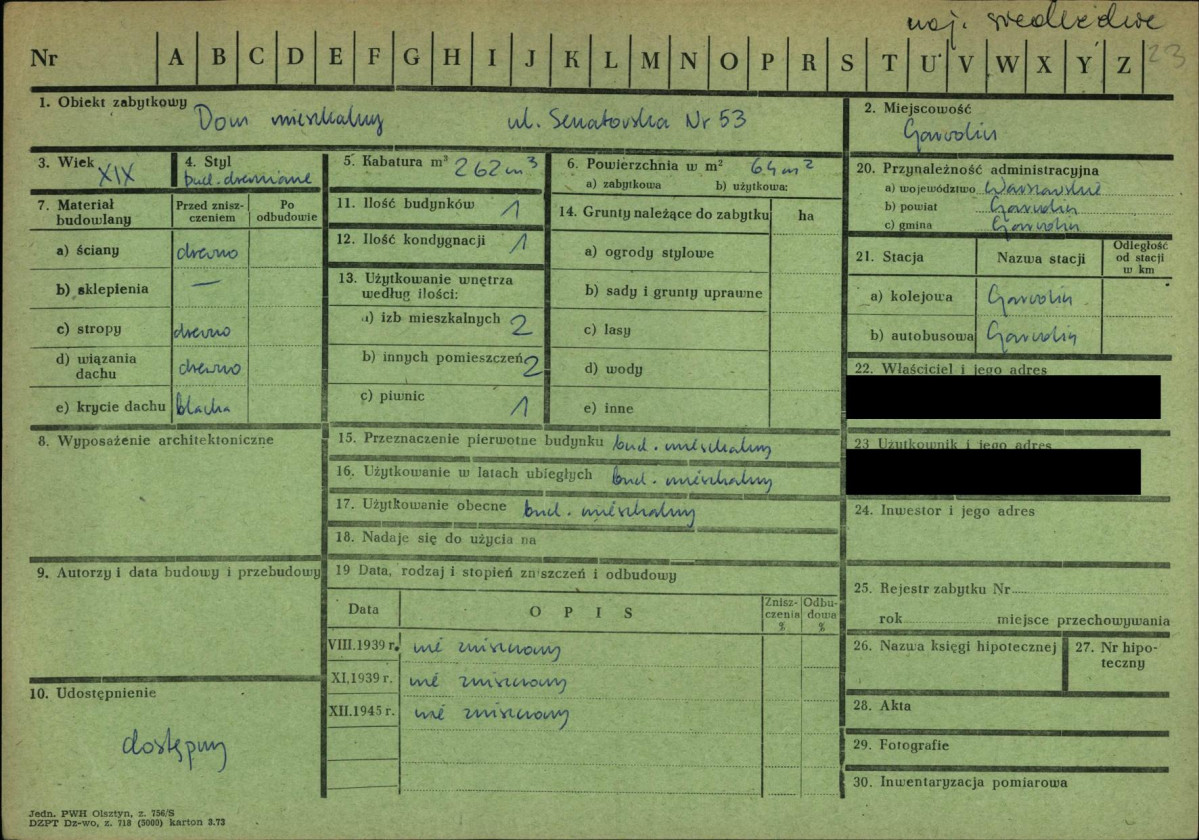 woj. siedleckie
23
Nr A B C D E F G H I J K L M N O P R S T U V W X Y Z
1. Obiekt zabytkowy
Dom mieszkalny ul. Senatorska Nr 53
2. Miejscowość
Garwolin
3. Wiek XIX
4. Styl
bud. drewniane
5. Kabatura m³ 262 m³
6. Powierzchnia w m² 64 m²
a) zabytkowa b) użytkowa:
7. Materiał budowlany
Przed zniszczeniem
Po odbudowie
a) ściany drewno
b) sklepienia —
c) stropy drewno
d) wiązania dachu drewno
e) krycie dachu blacha
8. Wyposażenie architektoniczne
9. Autorzy i data budowy i przebudowy
10. Udostępnienie
dostępny
11. Ilość budynków 1
12. Ilość kondygnacji 1
13. Użytkowanie wnętrza
według ilości:
a) izb mieszkalnych 2
b) innych pomieszczeń 2
c) piwnic 1
14. Grunty należące do zabytku ha
a) ogrody stylowe
b) sady i grunty uprawne
c) lasy
d) wody
e) inne
15. Przeznaczenie pierwotne budynku bud. mieszkalny
16. Użytkowanie w latach ubiegłych bud. mieszkalny
17. Użytkowanie obecne bud. mieszkalny
18. Nadaje się do użycia na
19 Data, rodzaj i stopień zniszczeń i odbudowy
Data OPIS Zniszczenia % Odbudowa %
VIII.1939 r. nie zniszczony
XI,1939 r. nie zniszczony
XII.1945 r. nie zniszczony
20. Przynależność administracyjna
a) województwo Warszawskie
b) powiat Garwolin
c) gmina Garwolin
21. Stacja Nazwa stacji Odległość od stacji w km
a) kolejowa Garwolin
b) autobusowa Garwolin
22. Właściciel i jego adres
23 Użytkownik i jego adres
24. Inwestor i jego adres
25. Rejestr zabytku Nr
rok miejsce przechowywania
26. Nazwa księgi hipotecznej
27. Nr hipoteczny
28. Akta
29. Fotografie
30. Inwentaryzacja pomiarowa
Jedn. PWH Olsztyn, z. 756/S
DZPT Dz-wo, z. 718 (5000) karton 3.73